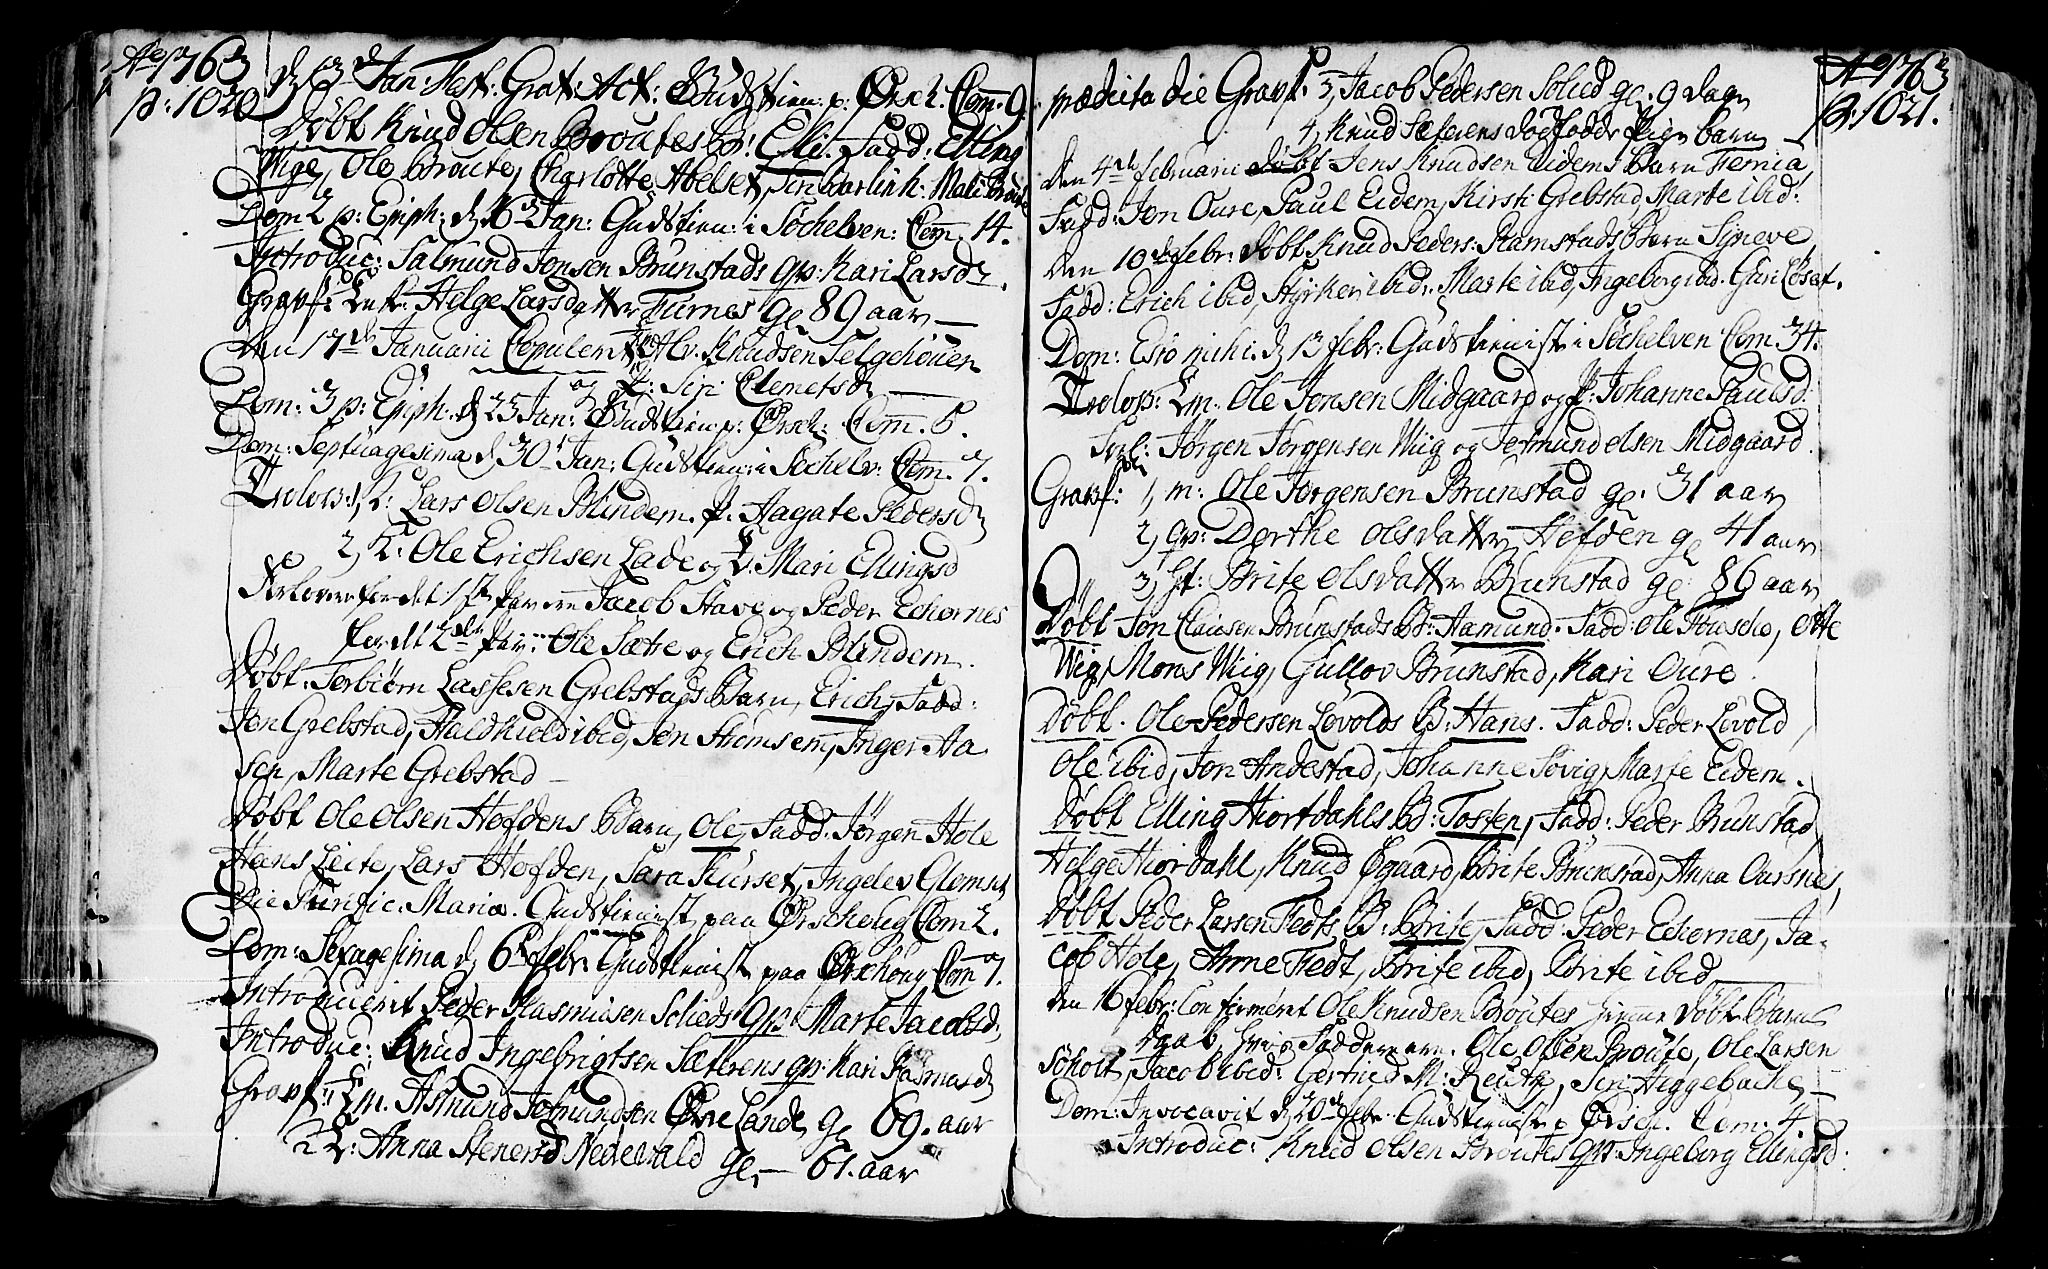 Ao 1763
p: 1020
d 13 Jan: Fest: Grat: Act: Gudstien: p: Ørsch. Com. 9.
Døbt Knud Olsen Broutes B: Elli. Fadd: Elling
Wige, Ole Broute, Charlotte Abelset, Siri Mali Broute
Dom 2 p: Epiph: d 16 Jan: Gudstien: i Søchelven: Com. 14.
Introduc: Salmund Jonsen Brunstads qv: Kari Larsd
Gravf: Enk: Helge Larsdatter Furnes gl 89 aar
Den 17de Januarii Copuleret Alv. Knudsen Felgehouen
og P: Siri Clemetsd
Dom: 3 p: Epiph: d 25 Jan: Gudstien p: Ørsch: Com. 5.
Dom: Septuagesima d 30 Jan: Gudstien: i Søchelv: Com. 7.
Trolov: 1, Lars Olsen Blindem. P. Aagate Pedersd
2, Ole Erichsen Lade og Mari Ellingsd
Forlovere for det 1ste par ere Jacob Stave og Peder Echornes
for det 2det par: Ole Sætre og Erich Blindem.
Døbt: Torbiørn Lassesen Grebstads Barn, Erich, Fadd:
Jon Grebstad, ibid, Jon, Inger Aa
sen, Marte Grebstad
Døbt Ole Olsen Hofdens Barn, Ole, Fadd: Jørgen Hole
Hans Leite, Lars Hofden, Sara Kurset, Ingelev Glemset
Die Purific: Mariæ. Gudstienist paa Ørschoug Com 2.
Dom: Sexagesima d 6te febr: Gudstienist paa Ørschoug Com 7.
Introduceret Peder Rasmusen Solieds qv: Marte Jacobsd.
Introduc: Knud Ingebrigtsen Sæterens qv: Kari Rasmusd
Gravf: 1 m. Asmund Jetmundsen Øvre Lande gl 69. aar
2 Anna Stenersd Nedrevold gl 61. aar
Ao 1763
p: 1021.
prædicta die Gravf. 3, Jacob Pedersen Solied gl. 9 dage
4, Knud Sæterens dødfødde Pige barn
Den 4de februarii døbt Jens Knudsen Eidems Barn
Fadd: Jon Oure, Paul Eidem, Kirsti Grebstad, Marte ibid:
Den 10de febr: døbt Knud Peders: Ramstads Barn Synneve
Fadd: Erich ibid, Styrker ibid: Marte ibid, Ingeborg ibid: Guri
Dom: Esto mihi d 13 febr: Gudstienist i Søchelven Com. 34.
Trolov: Em: Ole Jonsen Midgaard og P: Johanne Paulsd.
Forl: Jørgen Jørgensen Wiig og Jetmund Olsen Midgaard.
Gravf: 1, m: Ole Jørgensen Brunstad gl: 31 aar
2, qv: Dorthe Olsdatter Hofden gl 41 aar
3, Brite Olsdatter Brunstad gl 86 aar
Døbt Jon Clausen Brunstads B: Aamund. Fadd: Ole
Wiig, Mons Wiig, Gullov Brunstad, Kari Oure.
Døbt. Ole Pedersen Lovolds B: Hans. Fadd: Peder Lovold
Ole ibid, Jon Andestad, Johanne Søvig, Marte Eidem.
Døbt Elling Hiortdahls B: Tosten, Fadd: Peder Brunstad
Helge Hiordahl, Knud Øgaard, Brite Brunstad, Anna Oursnes,
Døbt Peder Larsen Tedts B: Brite, Fadd: Peder Echornes, Ja-
cob Hole, Anne Tedt, Brite ibid, Brite ibid
Den 16 febr: Confirmeret Ole Knudsen Broutes hjemme Døbt Barns
Daab, hvis Faddere ere: Ole Olsen Broute, Ole Larsen
Søholt, Jacob ibid: Gertrud M: Siri Heggebache
Dom: Invocavit d 20de febr. Gudstienist p Ørsch. Com: 4.
Introduc: Knud Olsen Broutes qv: Ingeborg Ellingsd: